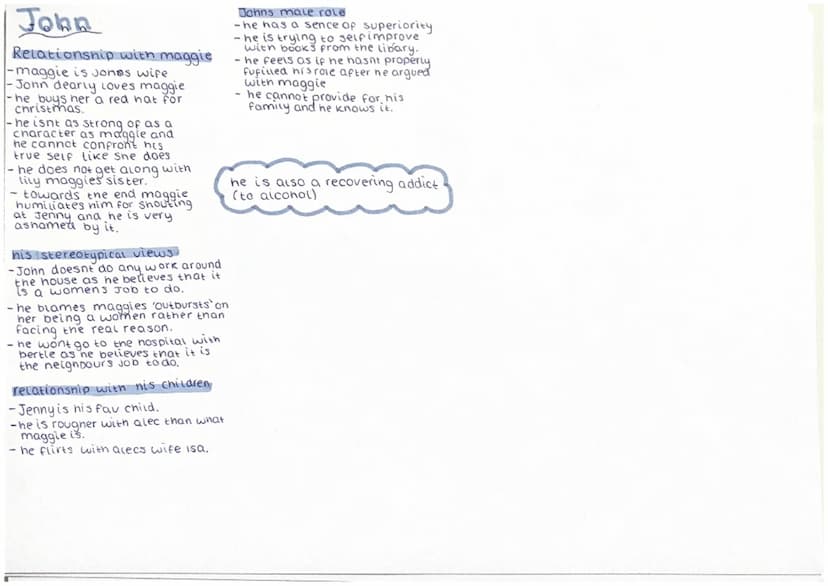 John
Relationship with maggie
- maggie is Johns wife
- John dearly loves maggie
- he buys her a red hat for
christmas.
- he isnt as strong of as a
character as maggie and
he cannot confront his
true self like she does
- he does not get along with
lily maggies sister.
- towards the end maggie
humiliates him for shouting
at Jenny and he is very
ashamed by it.
his stereotypical views
- John doesnt do any work around
the house as he believes that it
is a womens job to do.
- he blames maggies 'outbursts' on
her being a women rather than
facing the real reason.
- he wont go to the hospital with
bertie as he believes that it is
the neighbours job to do.
relationship with his children
- Jenny is his fav child.
- he is rougher with alec than what
maggie is.
- he flirts with alecs wife isa.
Johns male role
- he has a sence of superiority
- he is trying to self improve
with books from the library.
- he feels as if he hasnt properly
fufilled his role after he argued
with maggie
- he cannot provide for his
family and he knows it.
he is also a recovering addict
(to alcohol)